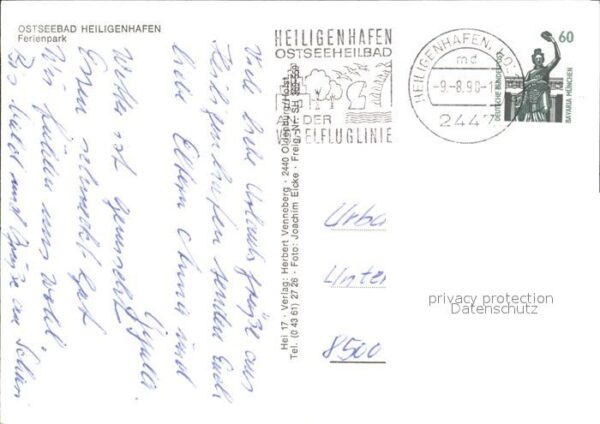 OSTSEEBAD HEILIGENHAFEN
Ferienpark
HEILIGENHAFEN
OSTSEEHEILBAD
AN DER
VOGELFLUGLINIE
HEILIGENHAFEN, HOL
md
-9.-8.90-1
2447
60
DEUTSCHE BUNDESPOST
BAVARIA MÜNCHEN
Viele liebe Urlaubsgrüße aus
Heiligenhafen senden Euch
liebe Eltern Anna und
Wetter ist gemischt
Essen schmeckt gut
Wir fühlen uns wohl.
Bis bald und Grüße an
Hei 17 · Verlag: Herbert Venneberg · 2440 Oldenburg/Holst.
Tel. (0 43 61) 27 26 · Foto: Joachim Eicke · Freig.-Nr. SH
Urba
Unter
8500
privacy protection
Datenschutz